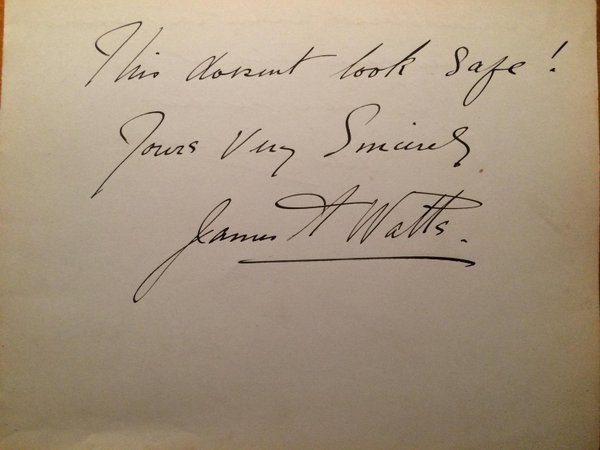 This doesnt look safe!
Yours Very Sincerely
James A Watts.